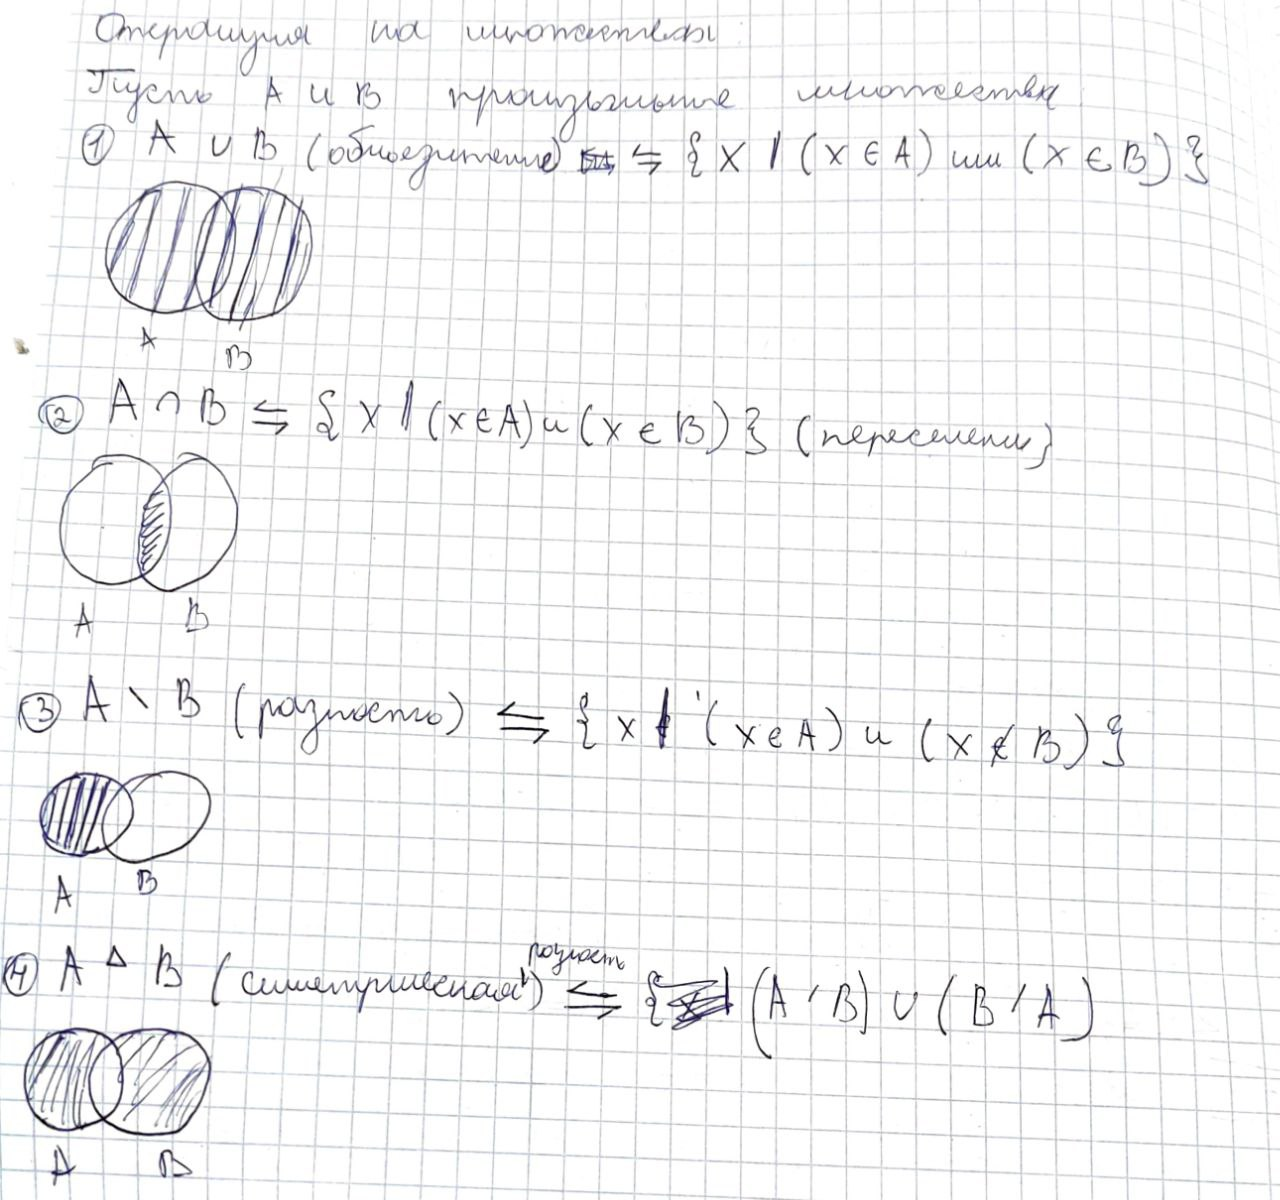 Операция на множествы
Пусть A и B произвольные множества
① A ∪ B (объединение) ⇆ { X | (X ∈ A) или (X ∈ B) }
A B
② A ∩ B ⇆ { X | (x ∈ A) и (x ∈ B) } (пересечение)
A B
③ A \ B (разность) ⇆ { x | (x ∈ A) и (x ∉ B) }
A B
разность
④ A Δ B (симетрическая) ⇆ { (A / B) ∪ (B / A)
A B